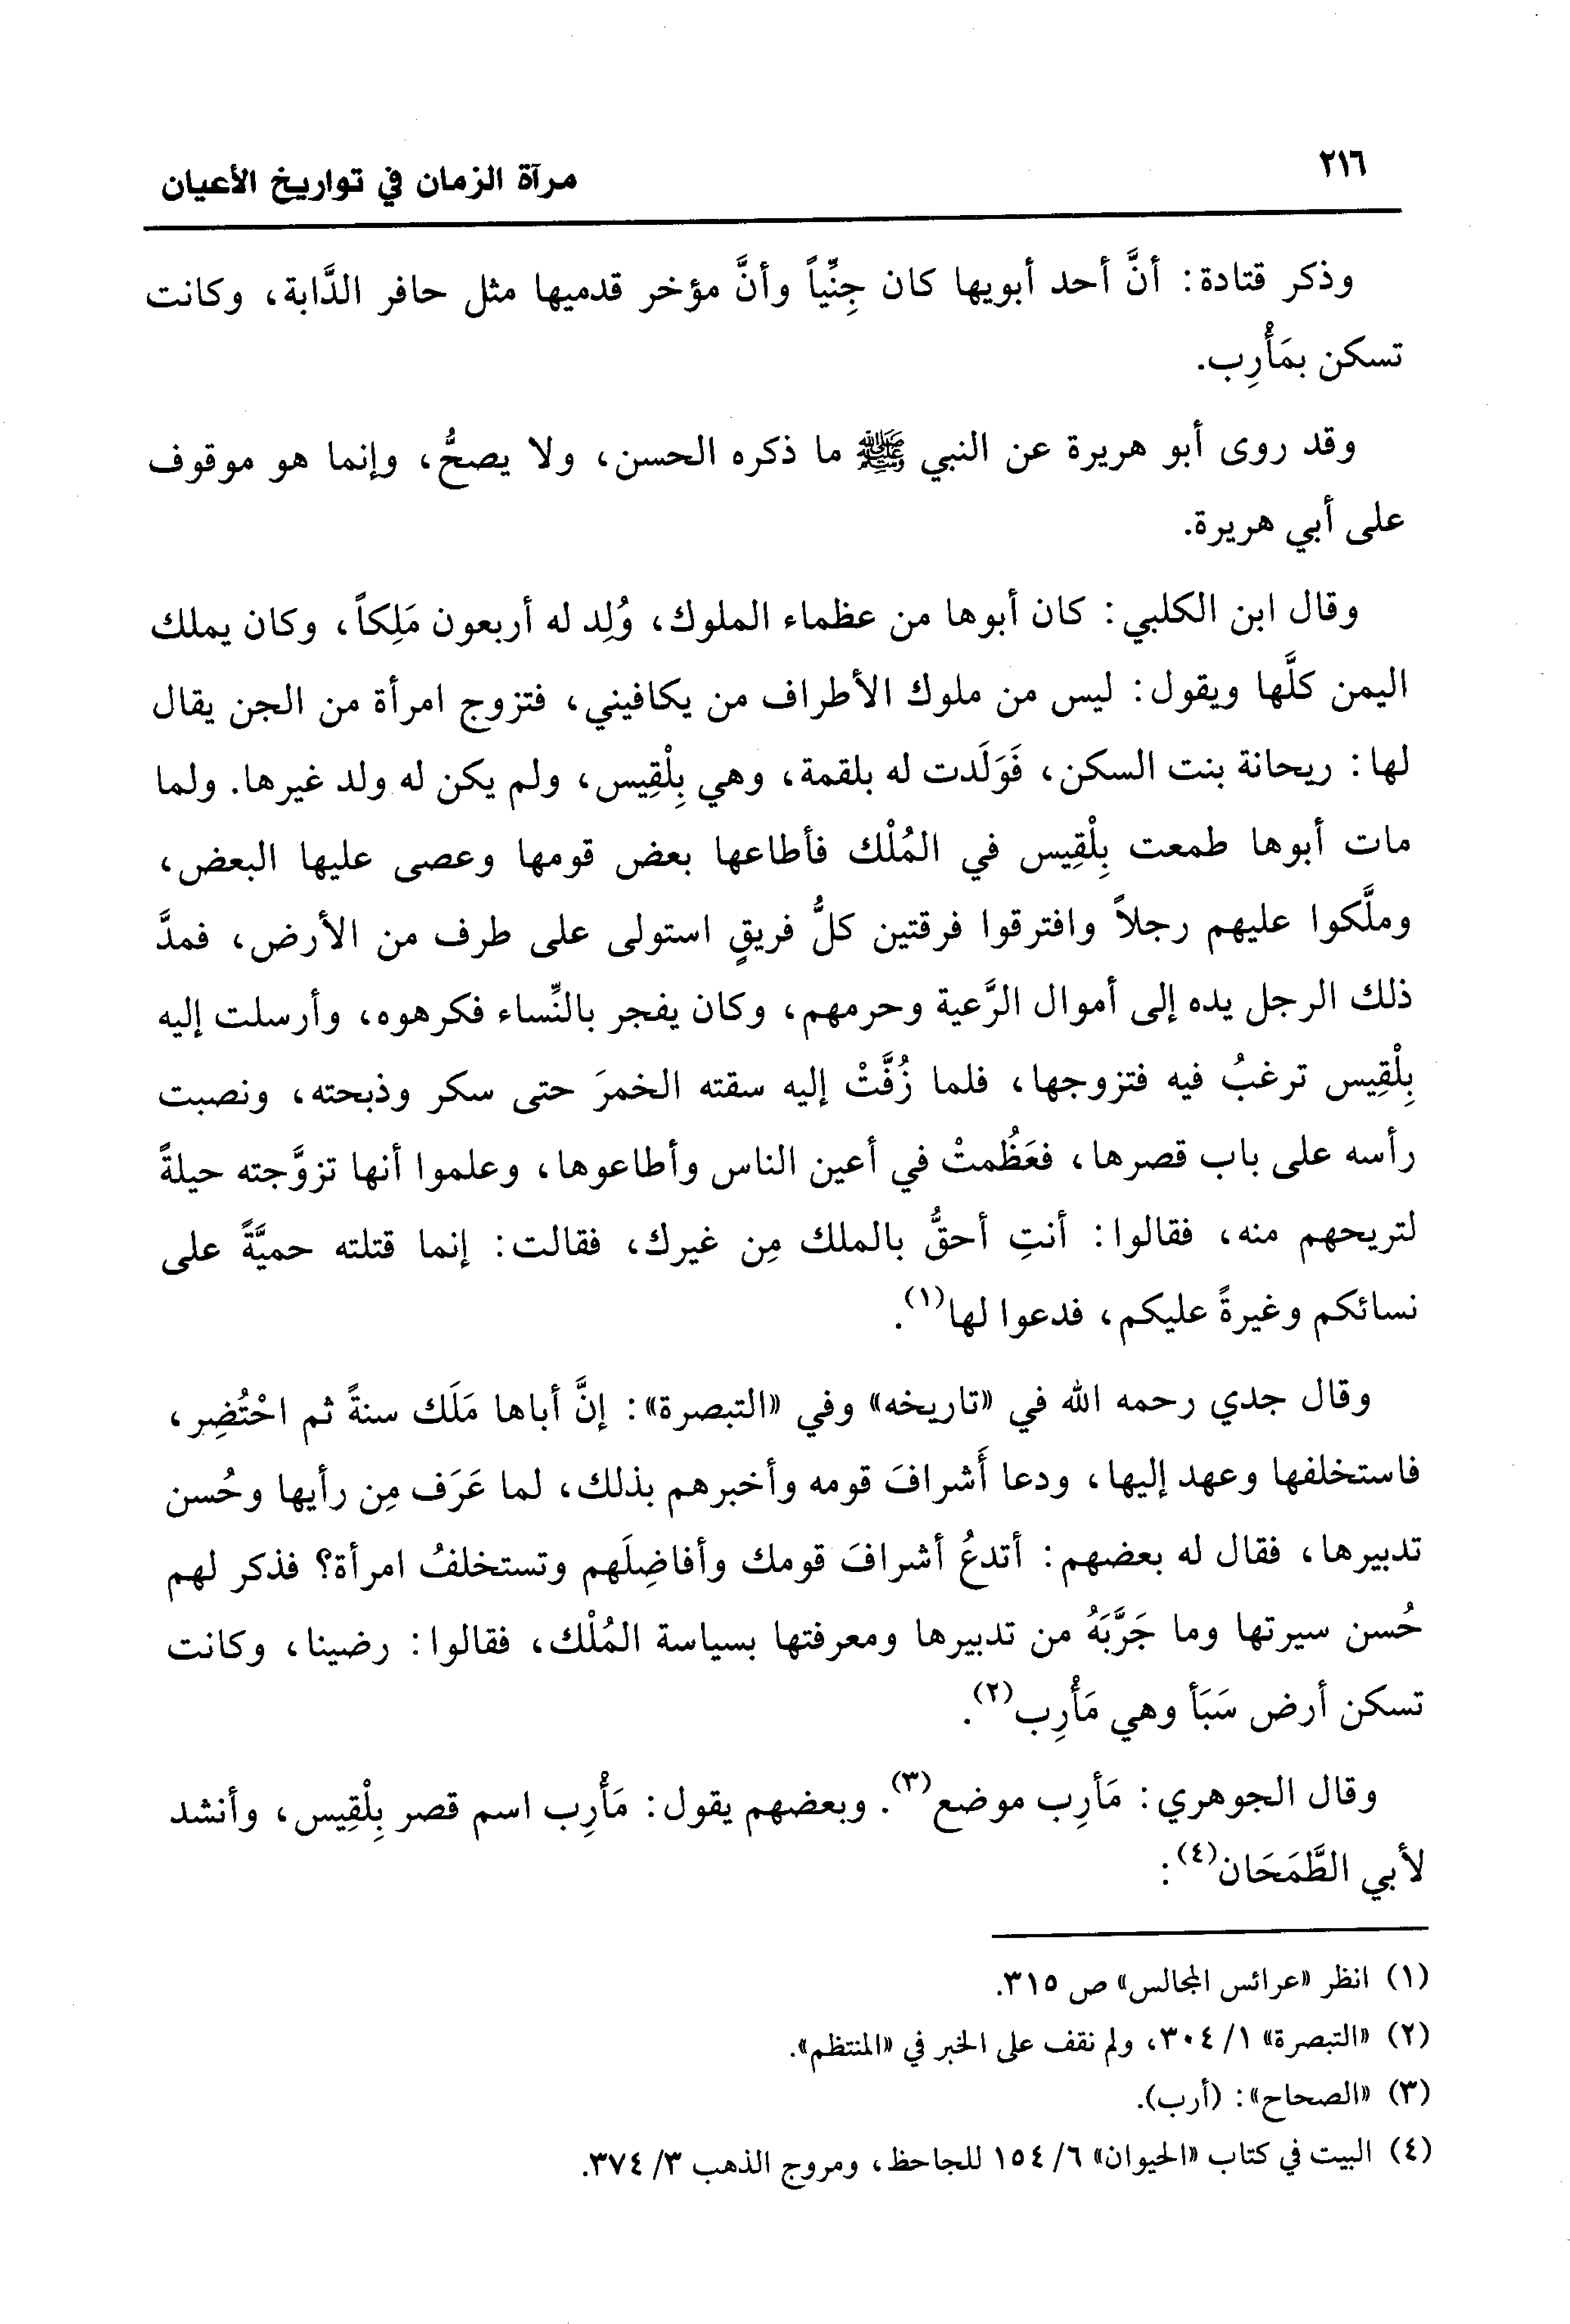 ٢١٦
مرآة الزمان في تواريخ الأعيان
وذكر قتادة: أنَّ أحد أبويها كان جِنِّياً وأنَّ مؤخر قدميها مثل حافر الدَّابة، وكانت
تسكن بمَأْرِب.
وقد روى أبو هريرة عن النبي ﷺ ما ذكره الحسن، ولا يصحُّ، وإنما هو موقوف
على أبي هريرة.
وقال ابن الكلبي: كان أبوها من عظماء الملوك، وُلِد له أربعون مَلِكاً، وكان يملك
اليمن كلَّها ويقول: ليس من ملوك الأطراف من يكافيني، فتزوج امرأة من الجن يقال
لها: ريحانة بنت السكن، فَوَلَدت له بلقمة، وهي بِلْقِيس، ولم يكن له ولد غيرها. ولما
مات أبوها طمعت بِلْقِيس في المُلْك فأطاعها بعض قومها وعصى عليها البعض،
وملَّكوا عليهم رجلاً وافترقوا فرقتين كلُّ فريقٍ استولى على طرف من الأرض، فمدَّ
ذلك الرجل يده إلى أموال الرَّعية وحرمهم، وكان يفجر بالنِّساء فكرهوه، وأرسلت إليه
بِلْقِيس ترغبُ فيه فتزوجها، فلما زُفَّتْ إليه سقته الخمرَ حتى سكر وذبحته، ونصبت
رأسه على باب قصرها، فعَظُمتْ في أعين الناس وأطاعوها، وعلموا أنها تزوَّجته حيلةً
لتريحهم منه، فقالوا: أنتِ أحقُّ بالملك مِن غيرك، فقالت: إنما قتلته حميَّةً على
نسائكم وغيرةً عليكم، فدعوا لها(١).
وقال جدي رحمه الله في «تاريخه» وفي «التبصرة»: إنَّ أباها مَلَك سنةً ثم احْتُضِر،
فاستخلفها وعهد إليها، ودعا أَشرافَ قومه وأخبرهم بذلك، لما عَرَف مِن رأيها وحُسن
تدبيرها، فقال له بعضهم: أتدعُ أشرافَ قومك وأفاضِلَهم وتستخلفُ امرأة؟ فذكر لهم
حُسن سيرتها وما جَرَّبَهُ من تدبيرها ومعرفتها بسياسة المُلْك، فقالوا: رضينا، وكانت
تسكن أرض سَبَأ وهي مَأْرِب(٢).
وقال الجوهري: مَأرِب موضع(٣). وبعضهم يقول: مَأْرِب اسم قصر بِلْقِيس، وأنشد
لأبي الطَّمَحَان(٤):
(١) انظر «عرائس المجالس» ص ٣١٥.
(٢) «التبصرة» ١/ ٣٠٤، ولم نقف على الخبر في «المنتظم».
(٣) «الصحاح»: (أرب).
(٤) البيت في كتاب «الحيوان» ٦/ ١٥٤ للجاحظ، ومروج الذهب ٣/ ٣٧٤.